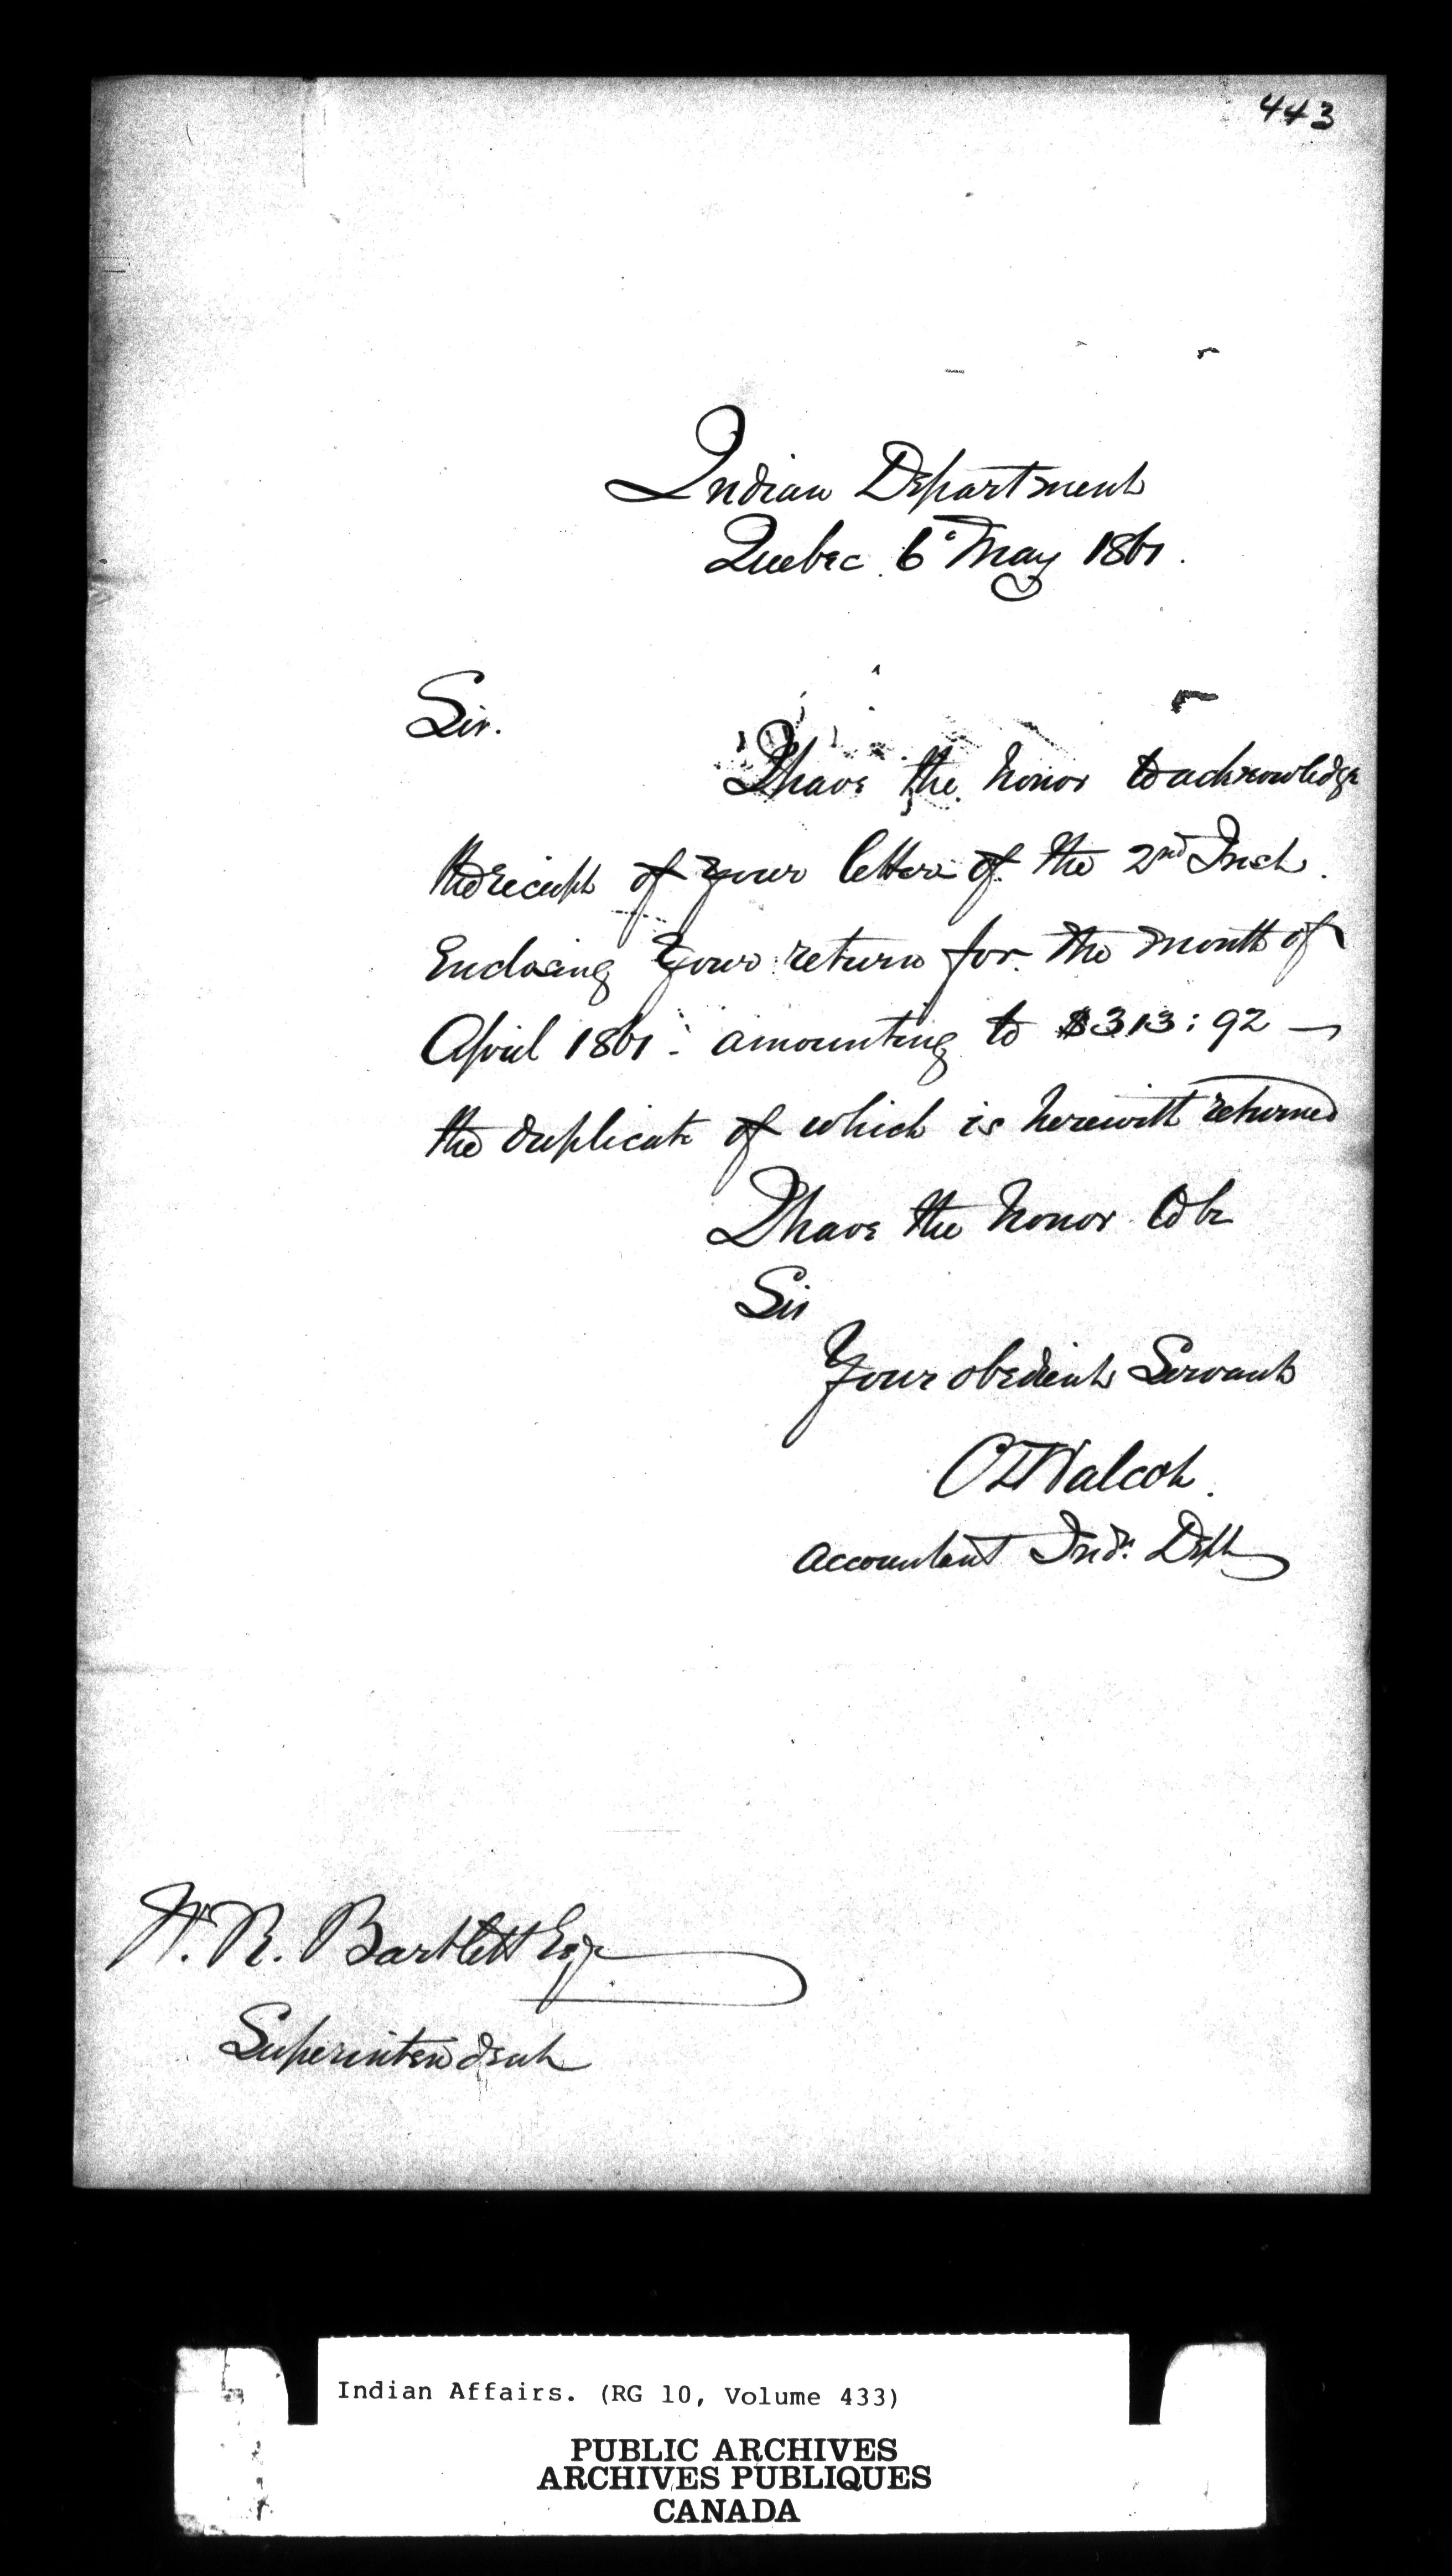 443
Indian Department
Quebec 6 May 1861.
Sir.
I have the honor to acknowledge
the receipt of your letter of the 2nd Inst.
Enclosing your return for the month of
April 1861. amounting to $313:92 —
the duplicate of which is herewith returned
I have the honor to be
Sir
Your obedient Servant
C T Walcot.
Accountant Indn. Dept
W. R. Bartlett Esqr
Superintendent
Indian Affairs. (RG 10, Volume 433)
PUBLIC ARCHIVES
ARCHIVES PUBLIQUES
CANADA